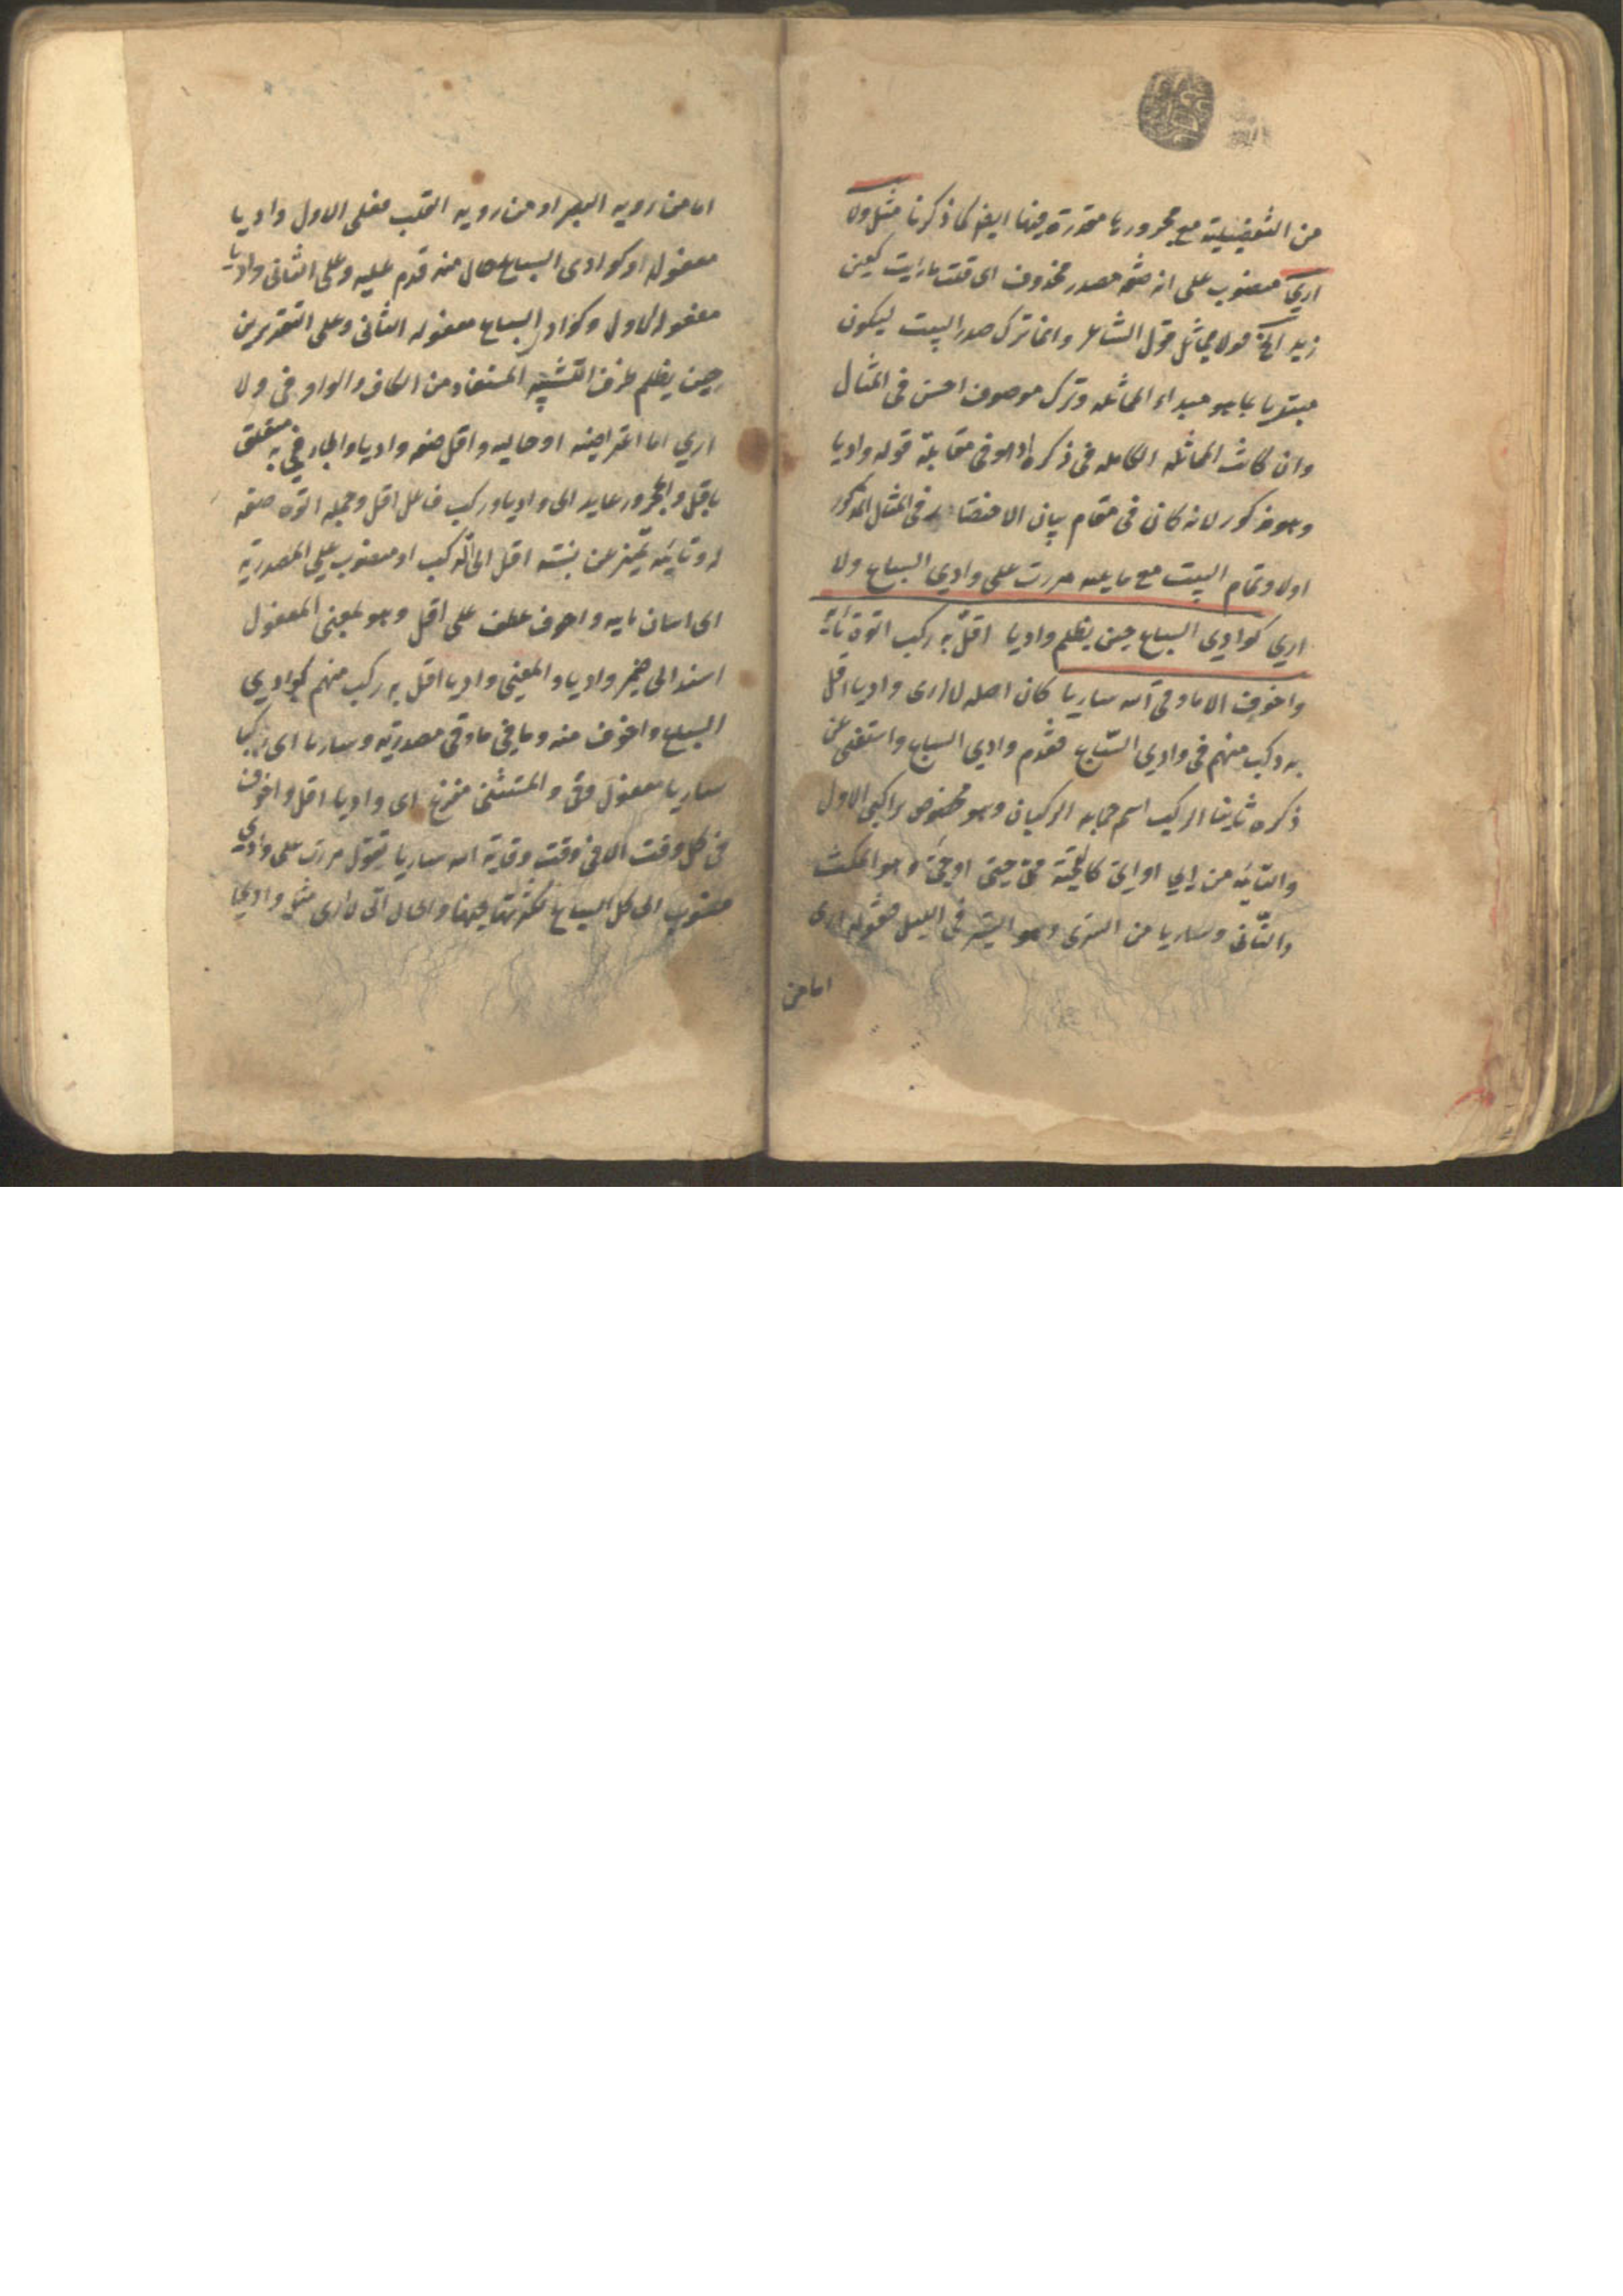 من التفضيلية مع مجرورها مقدرة فيها ايضا كما ذكرنا مثل ولا
ارى منصوب على انه صفة مصدر محذوف اى قلت ما رايت كعين
زيد الخ قولا يماثل قول الشاعر وانما ترك صدر البيت ليكون
مبتديا بما هو مبداء المماثله وترك موصوف احسن فى المثال
وان كانت المماثله الكامله فى ذكره اذ هو فى مقابلة قوله واديا
وهو مذكور لانه كان فى مقام بيان الاختصار فى المثل المذكور
اولا وتمام البيت مع ما يليه مررت على وادى السباع ولا
ارى كوادى السباع حين يظلم واديا اقل به ركب اتوه تاية
واخوف الا ما وقى الله ساريا كان اصله لا ارى واديا اقل
به ركب منهم فى وادى السباع فقدم وادى السباع واستغنى عن
ذكره ثانيا الركب اسم جماعه الركبان وهو مخصوص براكبى الابل
والتاية من او وهو المكث
والتانى وساريا من السرى وهو السير فى الليل فقوله ارى
اما من
اما من رويه البصر او من رويه القلب فعلى الاول واديا
مفعوله او كوادى السباع حال منه قدم عليه وعلى الثانى واديا
مفعوله الاول وكوادى السباع مفعوله الثانى وعلى التقديرين
حين يظلم ظرف التشبيه المستفاد من الكاف والواو فى ولا
ارى اما اعتراضيه او حاليه واقل صفه واديا والجار فى به متعلق
باقل والمجرور عايد الى واديا وركب فاعل اقل وجمله اتوه صفه
له وتاية تميز عن نسبه اقل الى الركب او منصوب على المصدرية
اى اتيان تايه واخوف عطف على اقل وهو بمعنى المفعول
اسند الى ضمير واديا والمعنى واديا اقل به ركب منهم كوادى
السباع واخوف منه وما فى ما وقى مصدرية وساريا اى ركبا
ساريا مفعول وقى والمستثنى مفرغ اى واديا اقل واخوف
فى كل وقت الا فى وقت وقاية الله ساريا يقول مررت على وادى
منسوب الى كل السباع لكثرتها فيها والحال انى لا ارى مثل وادى